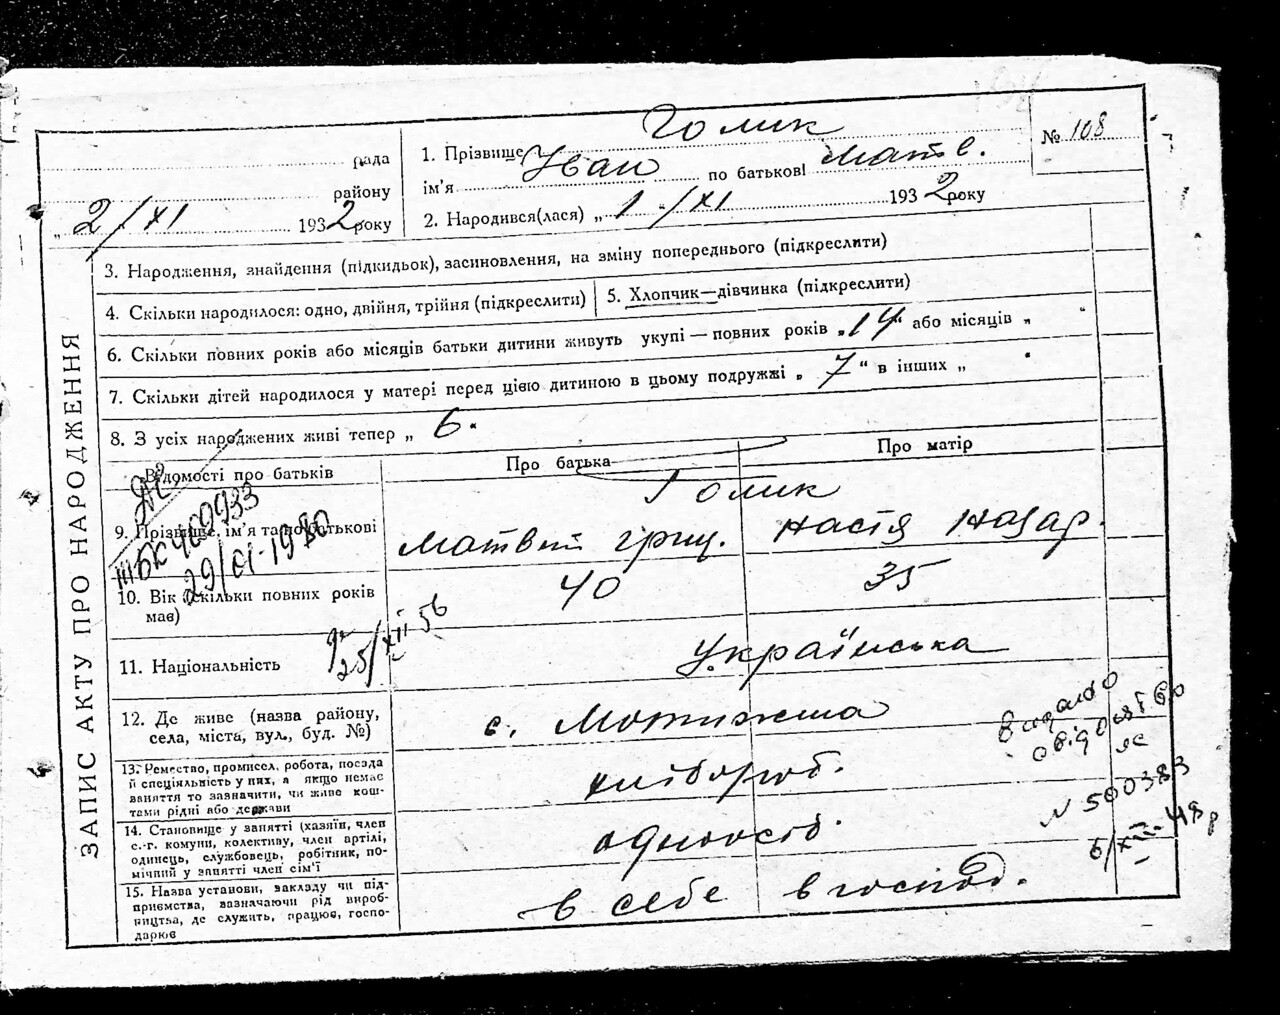 ЗАПИС АКТУ ПРО НАРОДЖЕННЯ
рада
району
„ 2/XI 1932 року
1. Прізвище Голик
ім'я Іван по батькові Матв.
2. Народився(лася) „ 1 " /XI 1932 року
№ 108
3. Народження, знайдення (підкидьок), засиновлення, на зміну попереднього (підкреслити)
4. Скільки народилося: одно, двійня, трійня (підкреслити)
5. Хлопчик—дівчинка (підкреслити)
6. Скільки повних років або місяців батьки дитини живуть укупі — повних років „ 14 " або місяців „ "
7. Скільки дітей народилося у матері перед цією дитиною в цьому подружжі „ 7 " в інших „ "
8. З усіх народжених живі тепер „ 6 "
Відомості про батьків
Про батька
Про матір
9. Прізвище, ім'я та по батькові
Голик
Матвий Гриц. Настя Назар.
10. Вік (скільки повних років має)
40 35
11. Національність
Українська
12. Де живе (назва району,
села, міста, вул., буд. №)
с. Мотижина
13. Ремество, промисел, робота, посада
й спеціяльність у них, а якщо немає
заняття то зазначити, чи живе кош-
тами рідні або держави
хлібороб.
14. Становище у занятті (хазяїн, член
с.-г. комуни, колективу, член артілі,
одинець, службовець, робітник, по-
мічний у занятті член сім'ї
одноосіб.
15. Назва установи, закладу чи під-
приємства, зазначаючи рід вироб-
ництва, де служить, працює, госпо-
дарює
в себе в господ.
III БК 400933
29/01-1980
25/XII 56
видано
свідоцтво
ЯС
№ 500383
6/XII-48р